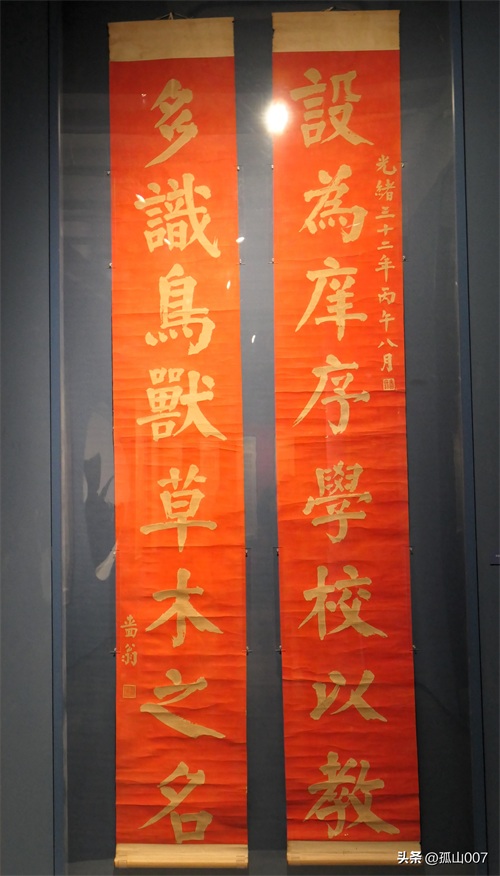 設為庠序學校以教
光緒三十二年丙午八月
多識鳥獸草木之名
嗇翁
头条 @孤山007